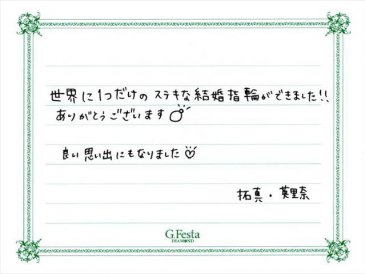 世界に1つだけの ステキな結婚指輪ができました!!
ありがとうございます
良い思い出にもなりました♡
拓真・英里奈
G.Festa
DIAMOND